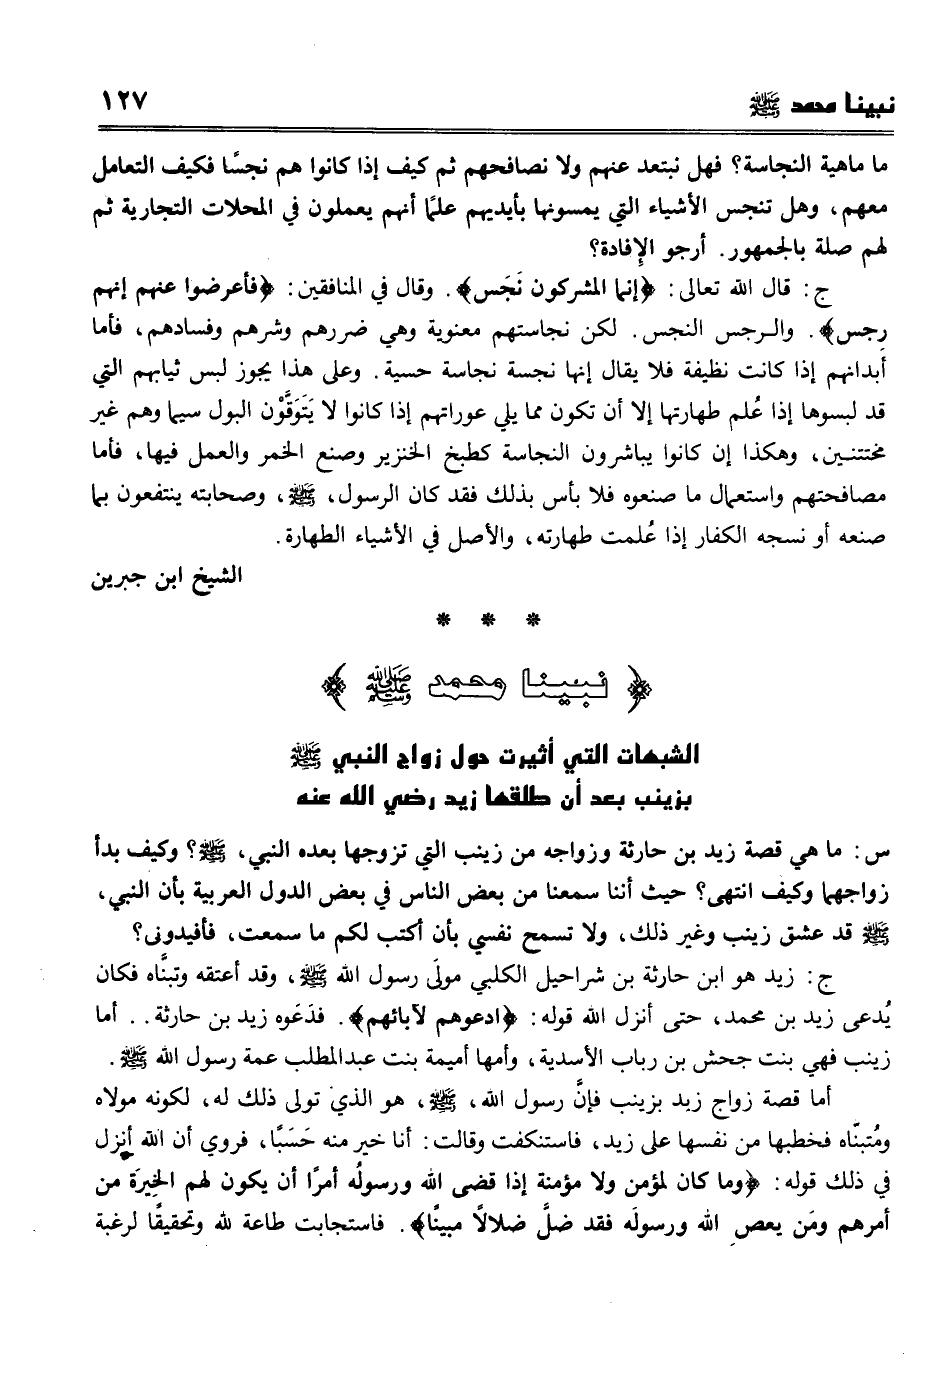 نبينا محمد ﷺ ١٢٧
ما ماهية النجاسة؟ فهل نبتعد عنهم ولا نصافحهم ثم كيف إذا كانوا هم نجسًا فكيف التعامل
معهم، وهل تنجس الأشياء التي يمسونها بأيديهم علمًا أنهم يعملون في المحلات التجارية ثم
لهم صلة بالجمهور. أرجو الإفادة؟
ج: قال الله تعالى: ﴿إنما المشركون نَجَس﴾. وقال في المنافقين: ﴿فأعرضوا عنهم إنهم
رجس﴾. والرجس النجس. لكن نجاستهم معنوية وهي ضررهم وشرهم وفسادهم، فأما
أبدانهم إذا كانت نظيفة فلا يقال إنها نجسة نجاسة حسية. وعلى هذا يجوز لبس ثيابهم التي
قد لبسوها إذا عُلم طهارتها إلا أن تكون مما يلي عوراتهم إذا كانوا لا يَتَوَقَّوْن البول سيما وهم غير
مختتنين، وهكذا إن كانوا يباشرون النجاسة كطبخ الخنزير وصنع الخمر والعمل فيها، فأما
مصافحتهم واستعمال ما صنعوه فلا بأس بذلك فقد كان الرسول، ﷺ، وصحابته ينتفعون بما
صنعه أو نسجه الكفار إذا عُلمت طهارته، والأصل في الأشياء الطهارة.
الشيخ ابن جبرين
* * *
﴿ نبينا محمد ﷺ ﴾
الشبهات التي أثيرت حول زواج النبي ﷺ
بزينب بعد أن طلقها زيد رضي الله عنه
س: ما هي قصة زيد بن حارثة وزواجه من زينب التي تزوجها بعده النبي، ﷺ؟ وكيف بدأ
زواجهما وكيف انتهى؟ حيث أننا سمعنا من بعض الناس في بعض الدول العربية بأن النبي،
ﷺ قد عشق زينب وغير ذلك، ولا تسمح نفسي بأن أكتب لكم ما سمعت، فأفيدونى؟
ج: زيد هو ابن حارثة بن شراحيل الكلبي مولَى رسول الله ﷺ، وقد أعتقه وتبنَّاه فكان
يُدعى زيد بن محمد، حتى أنزل الله قوله: ﴿ادعوهم لآبائهم﴾. فدَعَوه زيد بن حارثة.. أما
زينب فهي بنت جحش بن رباب الأسدية، وأمها أميمة بنت عبدالمطلب عمة رسول الله ﷺ.
أما قصة زواج زيد بزينب فإنَّ رسول الله، ﷺ، هو الذي تولى ذلك له، لكونه مولاه
ومُتبنَّاه فخطبها من نفسها على زيد، فاستنكفت وقالت: أنا خير منه حَسَبًا، فروي أن الله أنزل
في ذلك قوله: ﴿وما كان لمؤمن ولا مؤمنة إذا قضى الله ورسولُه أمرًا أن يكون لهم الخِيرَة من
أمرهم ومَن يعصِ الله ورسولَه فقد ضلَّ ضلالاً مبينًا﴾. فاستجابت طاعة لله وتحقيقًا لرغبة